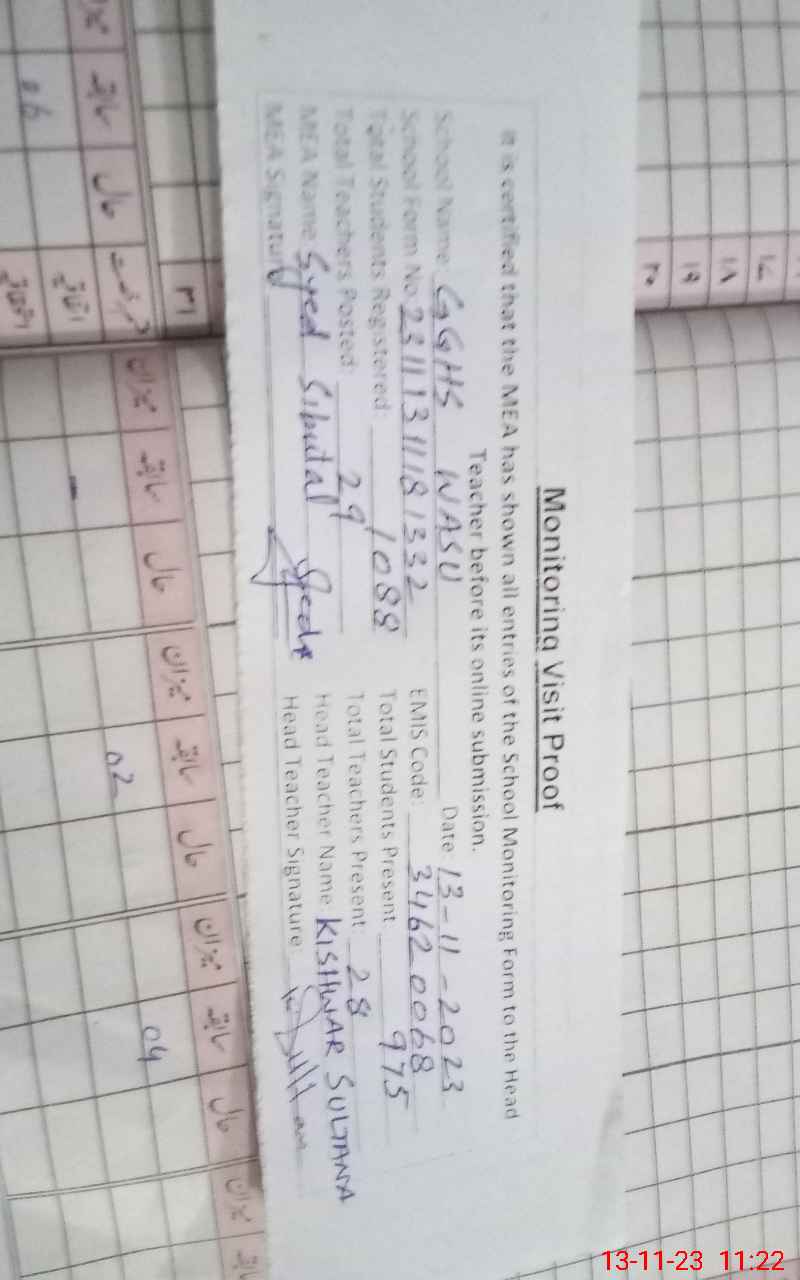 Monitoring Visit Proof
It is certified that the MEA has shown all entries of the School Monitoring Form to the Head
Teacher before its online submission.
School Name: GGHS WASU Date: 13-11-2023
School Form No. 23111311181332 EMIS Code: 34620068
Total Students Registered: 1088 Total Students Present: 975
Total Teachers Posted: 29 Total Teachers Present: 28
MEA Name: Syed Head Teacher Name KISHWAR SULTANA
MEA Signature Head Teacher Signature:
۱۷
۱۸
۱۹
۲۰
۳۱
میزان سابقہ حال
میزان سابقہ حال میزان سابقہ حال میزان سابقہ حال میزان
06
02
04
13-11-23 11:22